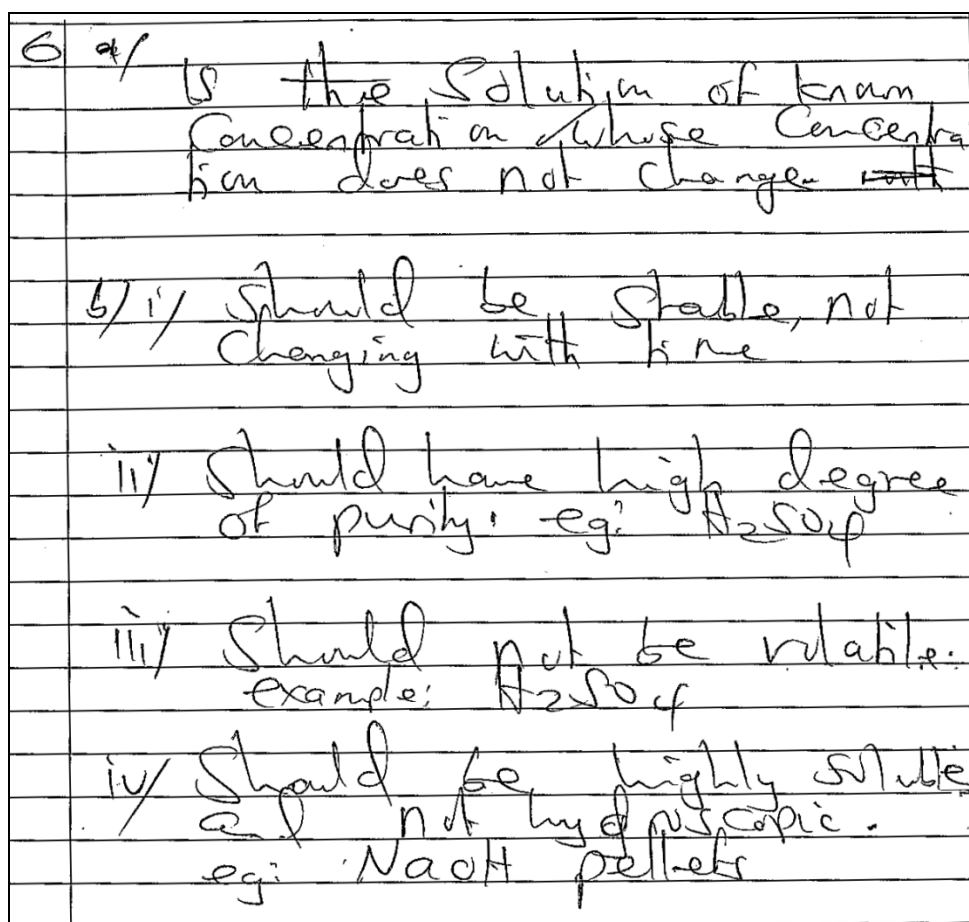 6 a/
Is the Solution of known
Concentration whose Concentra
tion does not change with
b/ i/ Should be stable, not
changing with time
ii/ Should have high degree
of purity. eg: H2SO4
iii/ Should not be volatile.
example: H2SO4
iv/ Should be highly soluble
and not hydroscopic.
eg: NaOH pellets